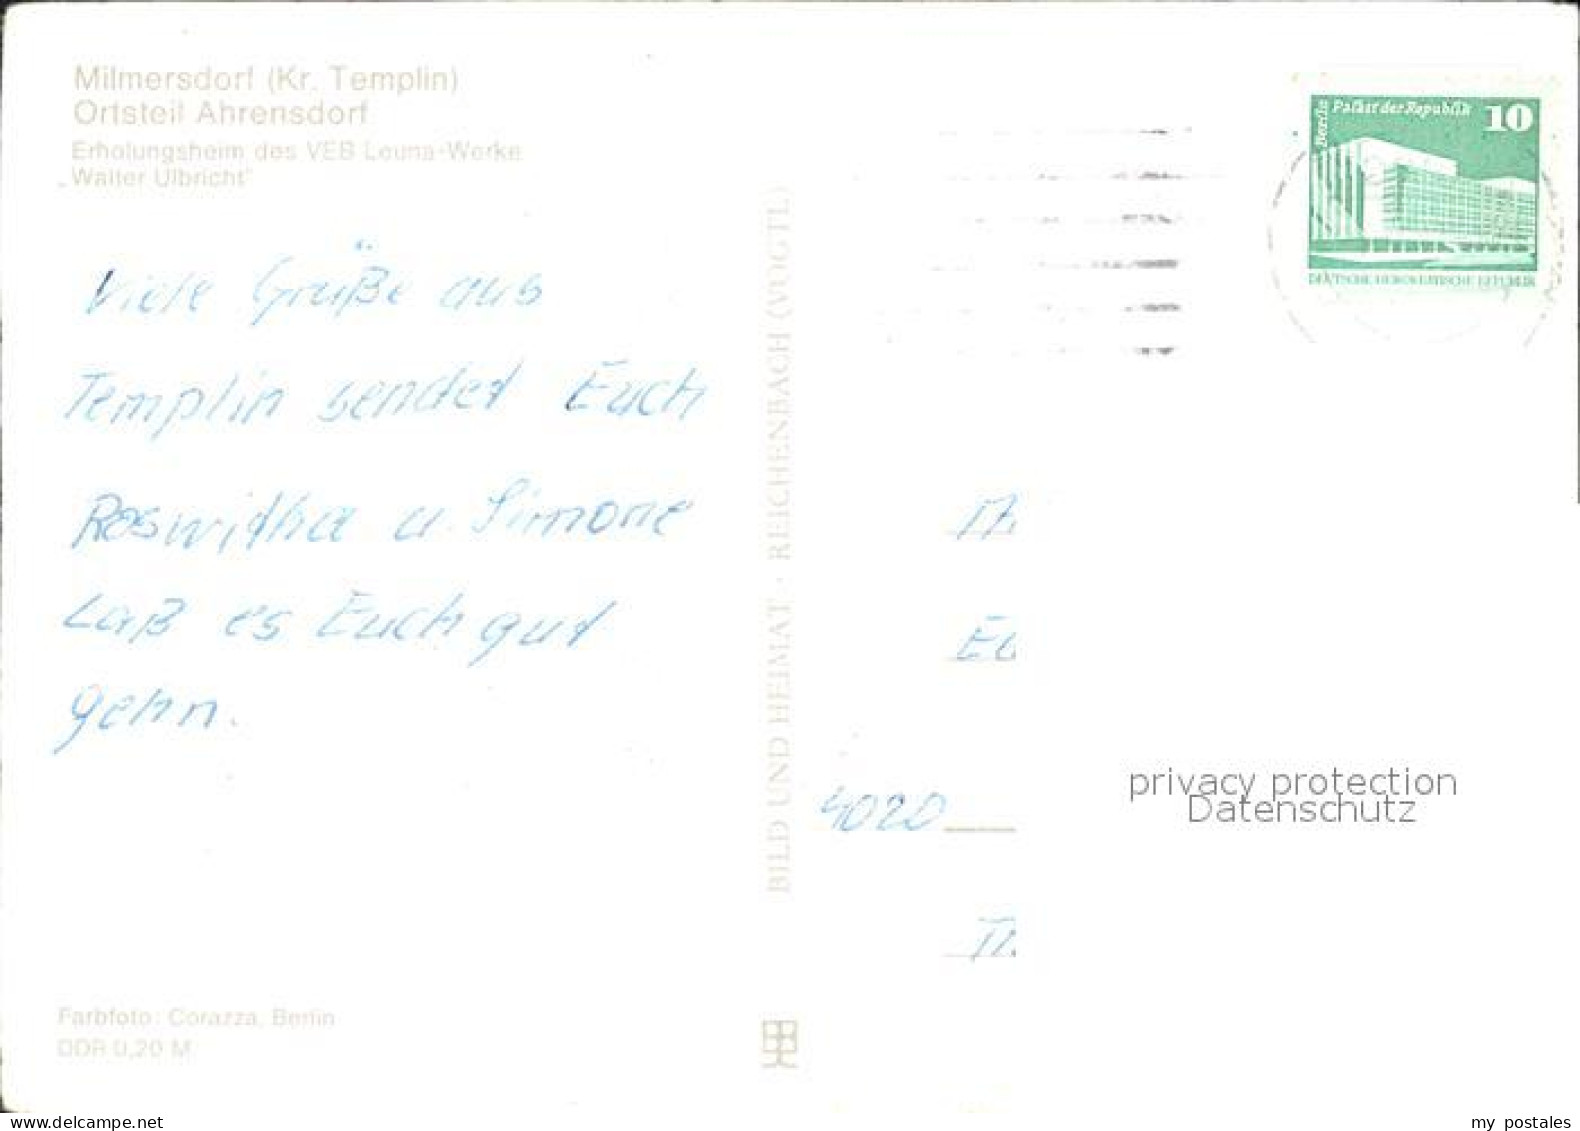 Milmersdorf (Kr. Templin)
Ortsteil Ahrensdorf
Erholungsheim des VEB Leuna-Werke
„Walter Ulbricht"
Viele Grüße aus
Templin sendet Euch
Roswitha u. Simone
Laß es Euch gut
gehn.
Farbfoto: Corazza, Berlin
DDR 0,20 M
BILD UND HEIMAT · REICHENBACH (VOGTL)
Berlin Palast der Republik 10
DEUTSCHE DEMOKRATISCHE REPUBLIK
4020
privacy protection
Datenschutz
www.delcampe.net
my postales